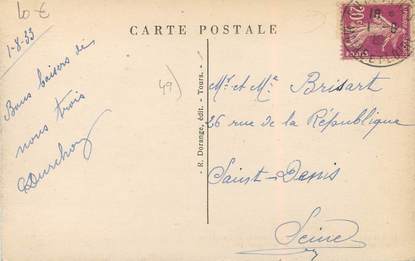 10 €
CARTE POSTALE
1-8-33
Bons baisers de
nous trois
49)
R. Dorange, édit. - Tours.
Mr et Me Brisart
26 rue de la République
Saint-Denis
Seine
20c